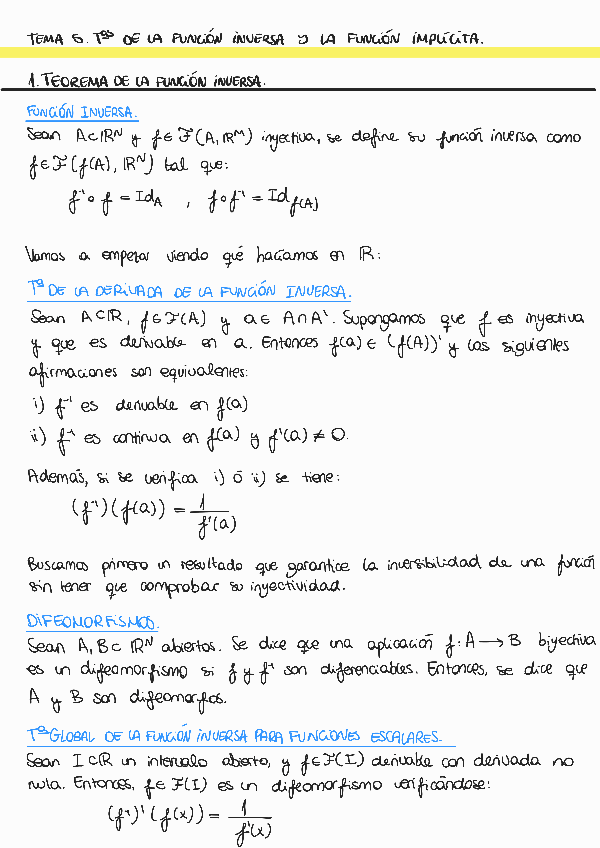 TEMA 5. Tᵃˢ DE LA FUNCIÓN INVERSA Y LA FUNCIÓN IMPLÍCITA.
1. TEOREMA DE LA FUNCIÓN INVERSA.
FUNCIÓN INVERSA.
Sean A⊂ℝᴺ y f∈ℱ(A,ℝᴹ) inyectiva, se define su función inversa como
f∈ℱ(f(A), ℝᴺ) tal que:
f⁻¹∘f = Id_A , f∘f⁻¹ = Id_f(A)
Vamos a empezar viendo qué hacíamos en ℝ:
Tᵃ DE LA DERIVADA DE LA FUNCIÓN INVERSA.
Sean A⊂ℝ, f∈ℱ(A) y a∈ A∩A'. Supongamos que f es inyectiva
y que es derivable en a. Entonces f(a)∈ (f(A))' y las siguientes
afirmaciones son equivalentes:
i) f⁻¹ es derivable en f(a)
ii) f⁻¹ es continua en f(a) y f'(a) ≠ 0.
Además, si se verifica i) ó ii) se tiene:
(f⁻¹)(f(a)) = 1/f'(a)
Buscamos primero un resultado que garantice la inversibilidad de una función
sin tener que comprobar su inyectividad.
DIFEOMORFISMOS.
Sean A,B⊂ ℝᴺ abiertos. Se dice que una aplicación f: A⟶B biyectiva
es un difeomorfismo si f y f⁻¹ son diferenciables. Entonces, se dice que
A y B son difeomorfos.
Tᵃ GLOBAL DE LA FUNCIÓN INVERSA PARA FUNCIONES ESCALARES.
Sean I⊂ℝ un intervalo abierto, y f∈ℱ(I) derivable con derivada no
nula. Entonces, f∈ℱ(I) es un difeomorfismo verificándose:
(f⁻¹)'(f(x)) = 1/f'(x)